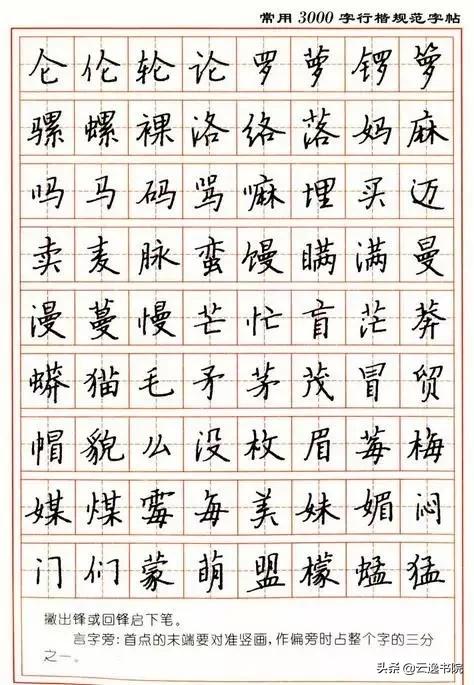 常用3000字行楷规范字帖
仑伦轮论罗萝锣箩
骡螺裸洛络落妈麻
吗马码骂嘛埋买迈
卖麦脉蛮馒瞒满曼
漫蔓慢芒忙盲茫莽
蟒猫毛矛茅茂冒贸
帽貌么没枚眉莓梅
媒煤霉每美妹媚闷
门们蒙萌盟檬蜢猛
撇出锋或回锋启下笔。
言字旁:首点的末端要对准竖画,作偏旁时占整个字的三分
之一。
头条@云逸书院